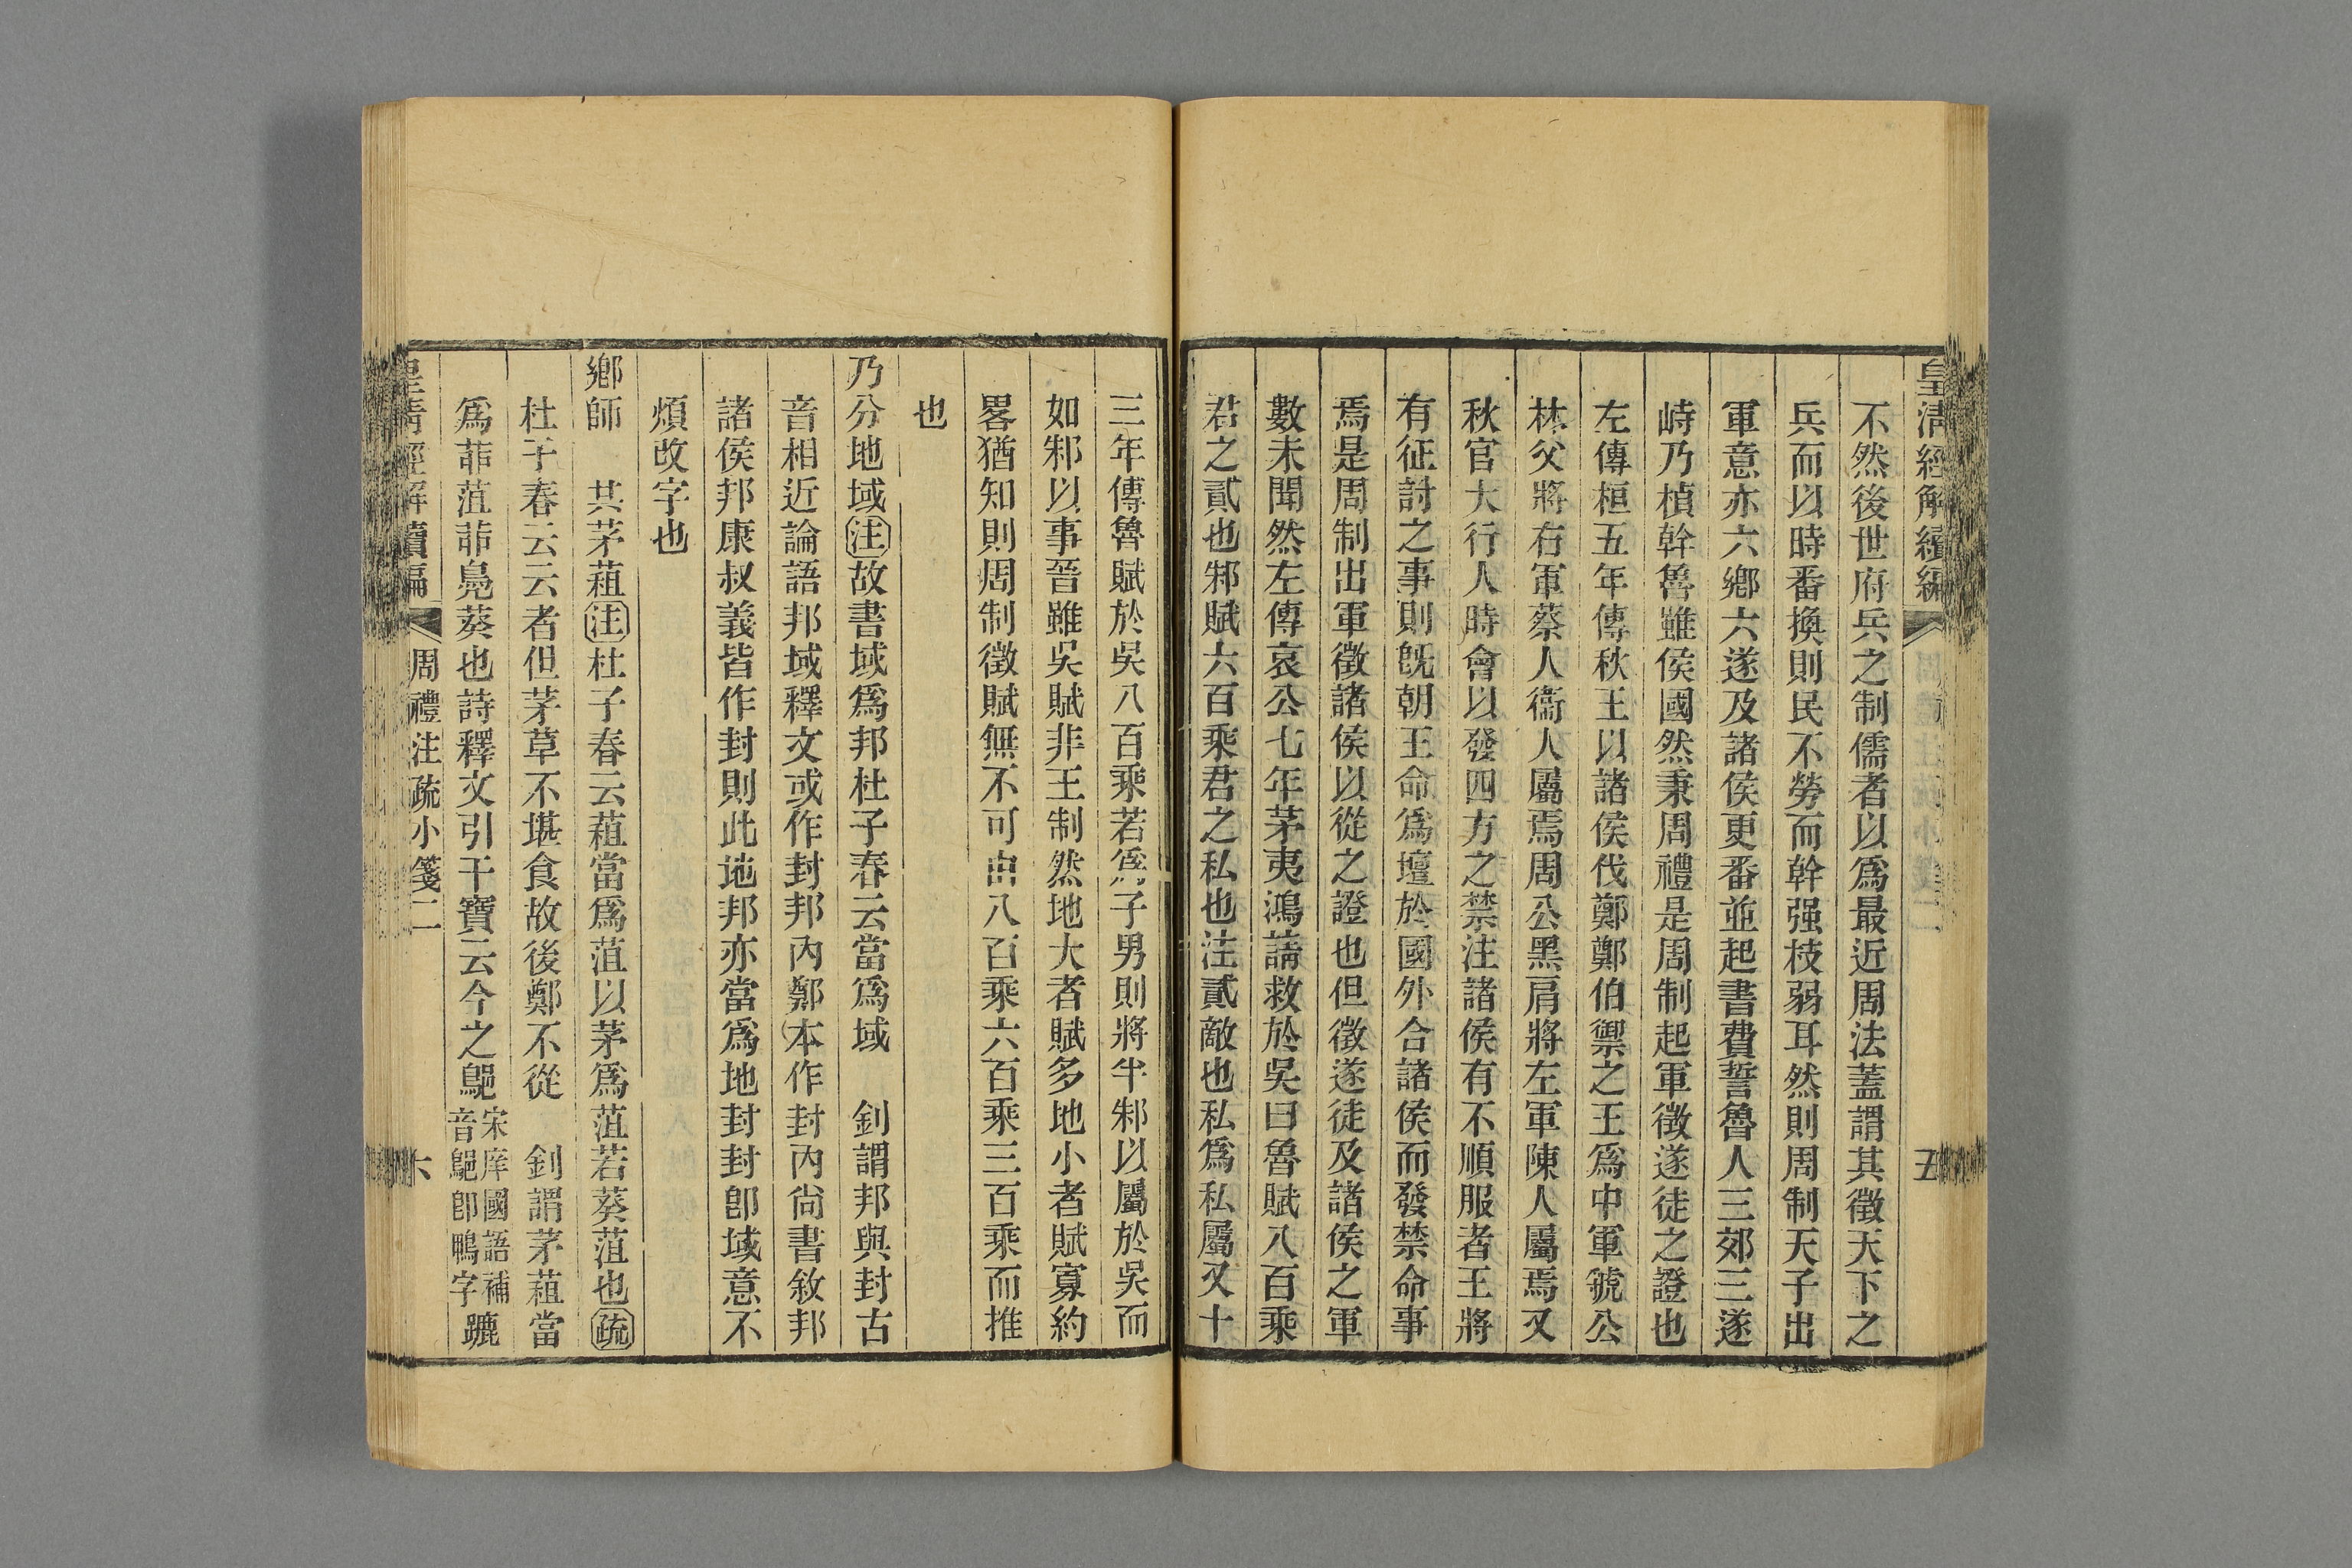 皇清經解續編
五
不然後世府兵之制儒者以爲最近周法蓋謂其徵天下之
兵而以時番換則民不勞而幹强枝弱耳然則周制天子出
軍意亦六鄉六遂及諸侯更番並起書費誓魯人三郊三遂
峙乃楨幹魯雖侯國然秉周禮是周制起軍徵遂徒之證也
左傳桓五年傳秋王以諸侯伐鄭鄭伯禦之王爲中軍虢公
林父將右軍蔡人衞人屬焉周公黑肩將左軍陳人屬焉又
秋官大行人時會以發四方之禁注諸侯有不順服者王將
有征討之事則旣朝王命爲壇於國外合諸侯而發禁命事
焉是周制出軍徵諸侯以從之證也但徵遂徒及諸侯之軍
數未聞然左傳哀公七年茅夷鴻請救於吳曰魯賦八百乘
君之貳也邾賦六百乘君之私也注貳敵也私爲私屬又十
三年傳魯賦於吳八百乘若爲子男則將半邾以屬於吳而
如邾以事晉雖吳賦非王制然地大者賦多地小者賦寡約
畧猶知則周制徵賦無不可由八百乘六百乘三百乘而推
也
乃分地域注故書域爲邦杜子春云當爲域　釗謂邦與封古
音相近論語邦域釋文或作封邦內鄭本作封內尙書敘邦
諸侯邦康叔義皆作封則此地邦亦當爲地封封卽域意不
煩改字也
鄉師　其茅蒩注杜子春云蒩當爲菹以茅爲菹若葵菹也疏
杜子春云云者但茅草不堪食故後鄭不從　釗謂茅蒩當
爲䔈菹䔈鳧葵也詩釋文引干寶云今之䴐宋庠國語補音䴐卽鴨字蹗
皇清經解續編　周禮注疏小箋二
六